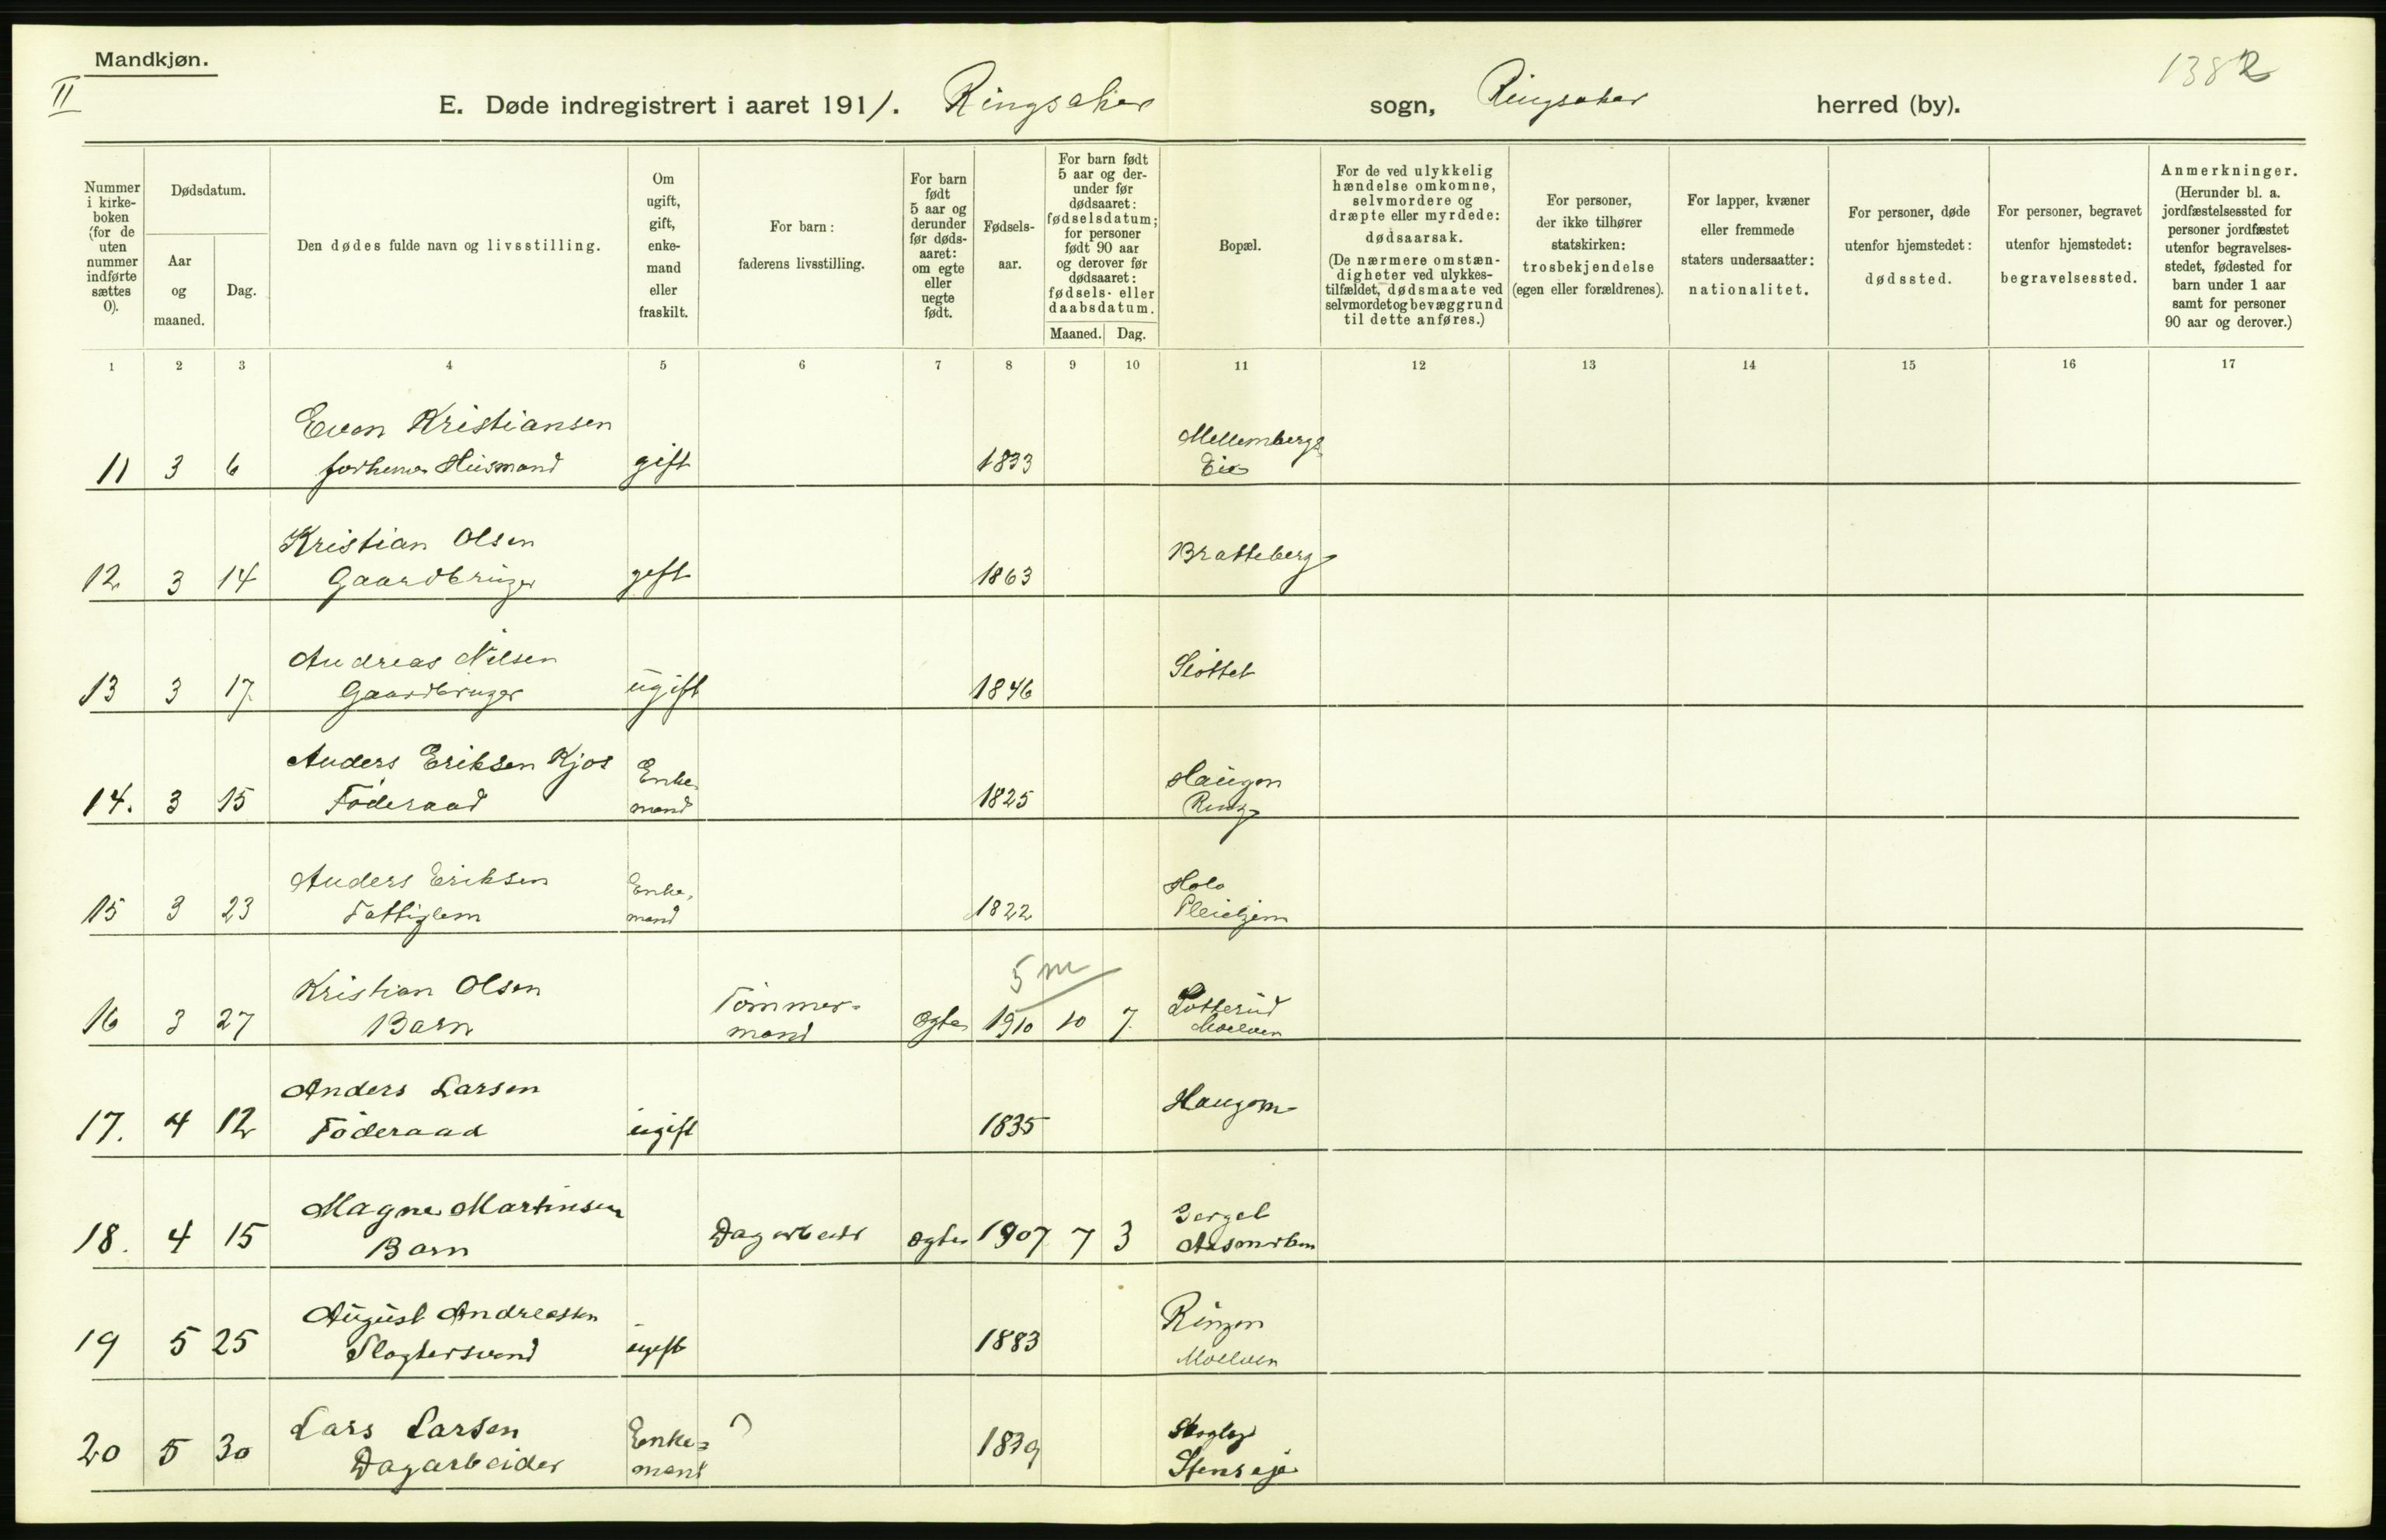 Mandkjøn.
II
1382
E. Døde indregistrert i aaret 1911. Ringsaker sogn, Ringsaker herred (by).
Nummer i kirkeboken (for de uten nummer indførte sættes 0).
Dødsdatum.
Aar og maaned.
Dag.
Den dødes fulde navn og livsstilling.
Om ugift, gift, enkemand eller fraskilt.
For barn: faderens livsstilling.
For barn født 5 aar og derunder før dødsaaret: om egte eller uegte født.
Fødselsaar.
For barn født 5 aar og derunder før dødsaaret: fødselsdatum; for personer født 90 aar og derover før dødsaaret: fødsels- eller daabsdatum.
Maaned. Dag.
Bopæl.
For de ved ulykkelig hændelse omkomne, selvmordere og dræpte eller myrdede: dødsaarsak. (De nærmere omstændigheter ved ulykkestilfældet, dødsmaate ved selvmordet og bevæggrund til dette anføres.)
For personer, der ikke tilhører statskirken: trosbekjendelse (egen eller forældrenes).
For lapper, kvæner eller fremmede staters undersaatter: nationalitet.
For personer, døde utenfor hjemstedet: dødssted.
For personer, begravet utenfor hjemstedet: begravelsessted.
Anmerkninger. (Herunder bl. a. jordfæstelsessted for personer jordfæstet utenfor begravelsesstedet, fødested for barn under 1 aar samt for personer 90 aar og derover.)
1 2 3 4 5 6 7 8 9 10 11 12 13 14 15 16 17
Even Kristiansen Mellembergs
11 3 6 forhenv. Husmand gift 1833 Eie
Kristian Olsen Bratteberg
12 3 14 Gaardbruger gift 1863
Andreas Nilsen Slottet
13 3 17 Gaardbruger ugift 1846
Anders Eriksen Kjos Enke- Haugen
14. 3 15 Föderaad mand 1825 Ring
Anders Eriksen Enke- Holo
15 3 23 Fattiglem mand 1822 Pleiehjem
5 m
Kristian Olsen Tömmer- Lotterud
16 3 27 Barn mand ægte 1910 10 7 Moelven
Anders Larsen Haugom
17. 4 12 Föderaad ugift 1835
Magne Martinsen
18. 4 15 Barn Dagarbeider ægte 1907 7 3 Aasmarken
August Andreassen Ringen
19 5 25 Slagtersvend ugift 1883 Moelven
Lars Larsen Enke- ?
20 5 30 Dagarbeider mand 1839 Stenseje